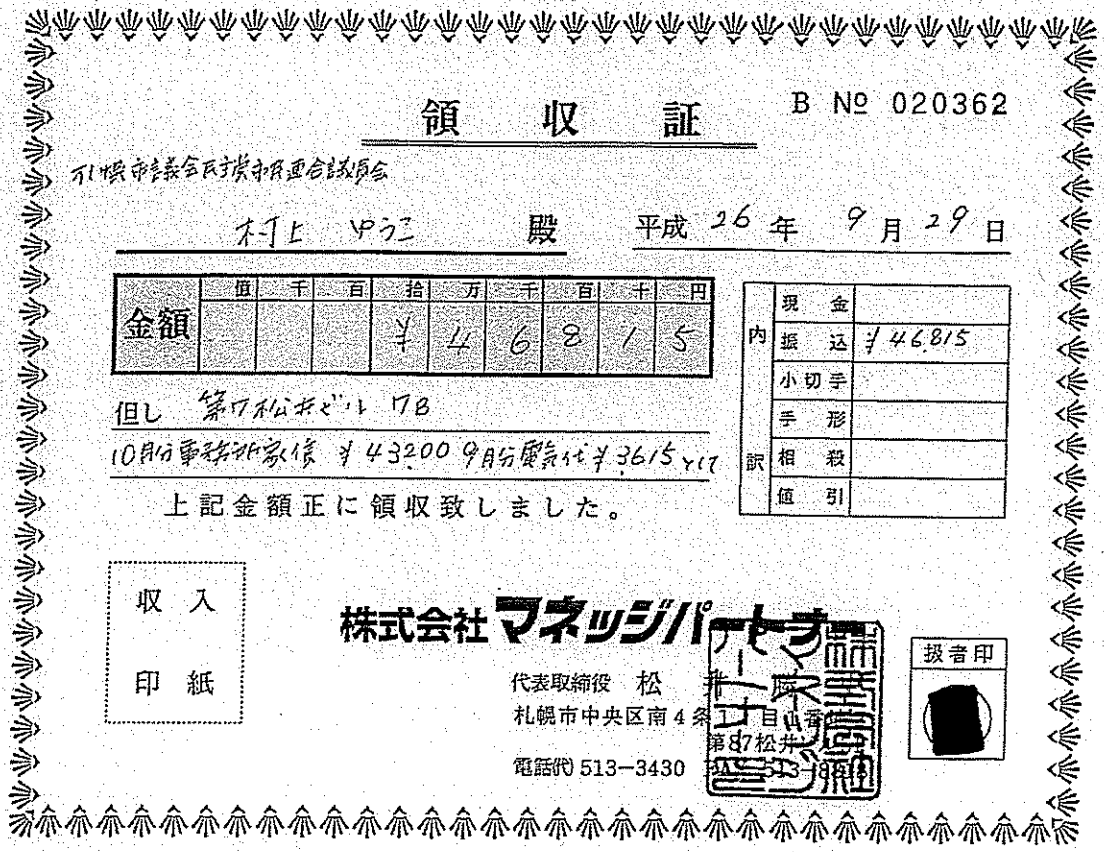 領収証
B № 020362
札幌市議会民主党市民連合議員会
村上 ゆうこ 殿
平成 26 年 9 月 29 日
金額
億 千 百 拾 万 千 百 十 円
¥ 4 6 8 1 5
内訳
現金
振込 ¥46,815
小切手
手形
相殺
値引
但し 第7松井ビル 7B
10月分事務所家賃 ¥43,200 9月分電気代 ¥3,615
上記金額正に領収致しました。
収入
印紙
株式会社マネッジパートナー
代表取締役 松井
札幌市中央区南4条
第87松井ビル
電話代 513-3430
扱者印